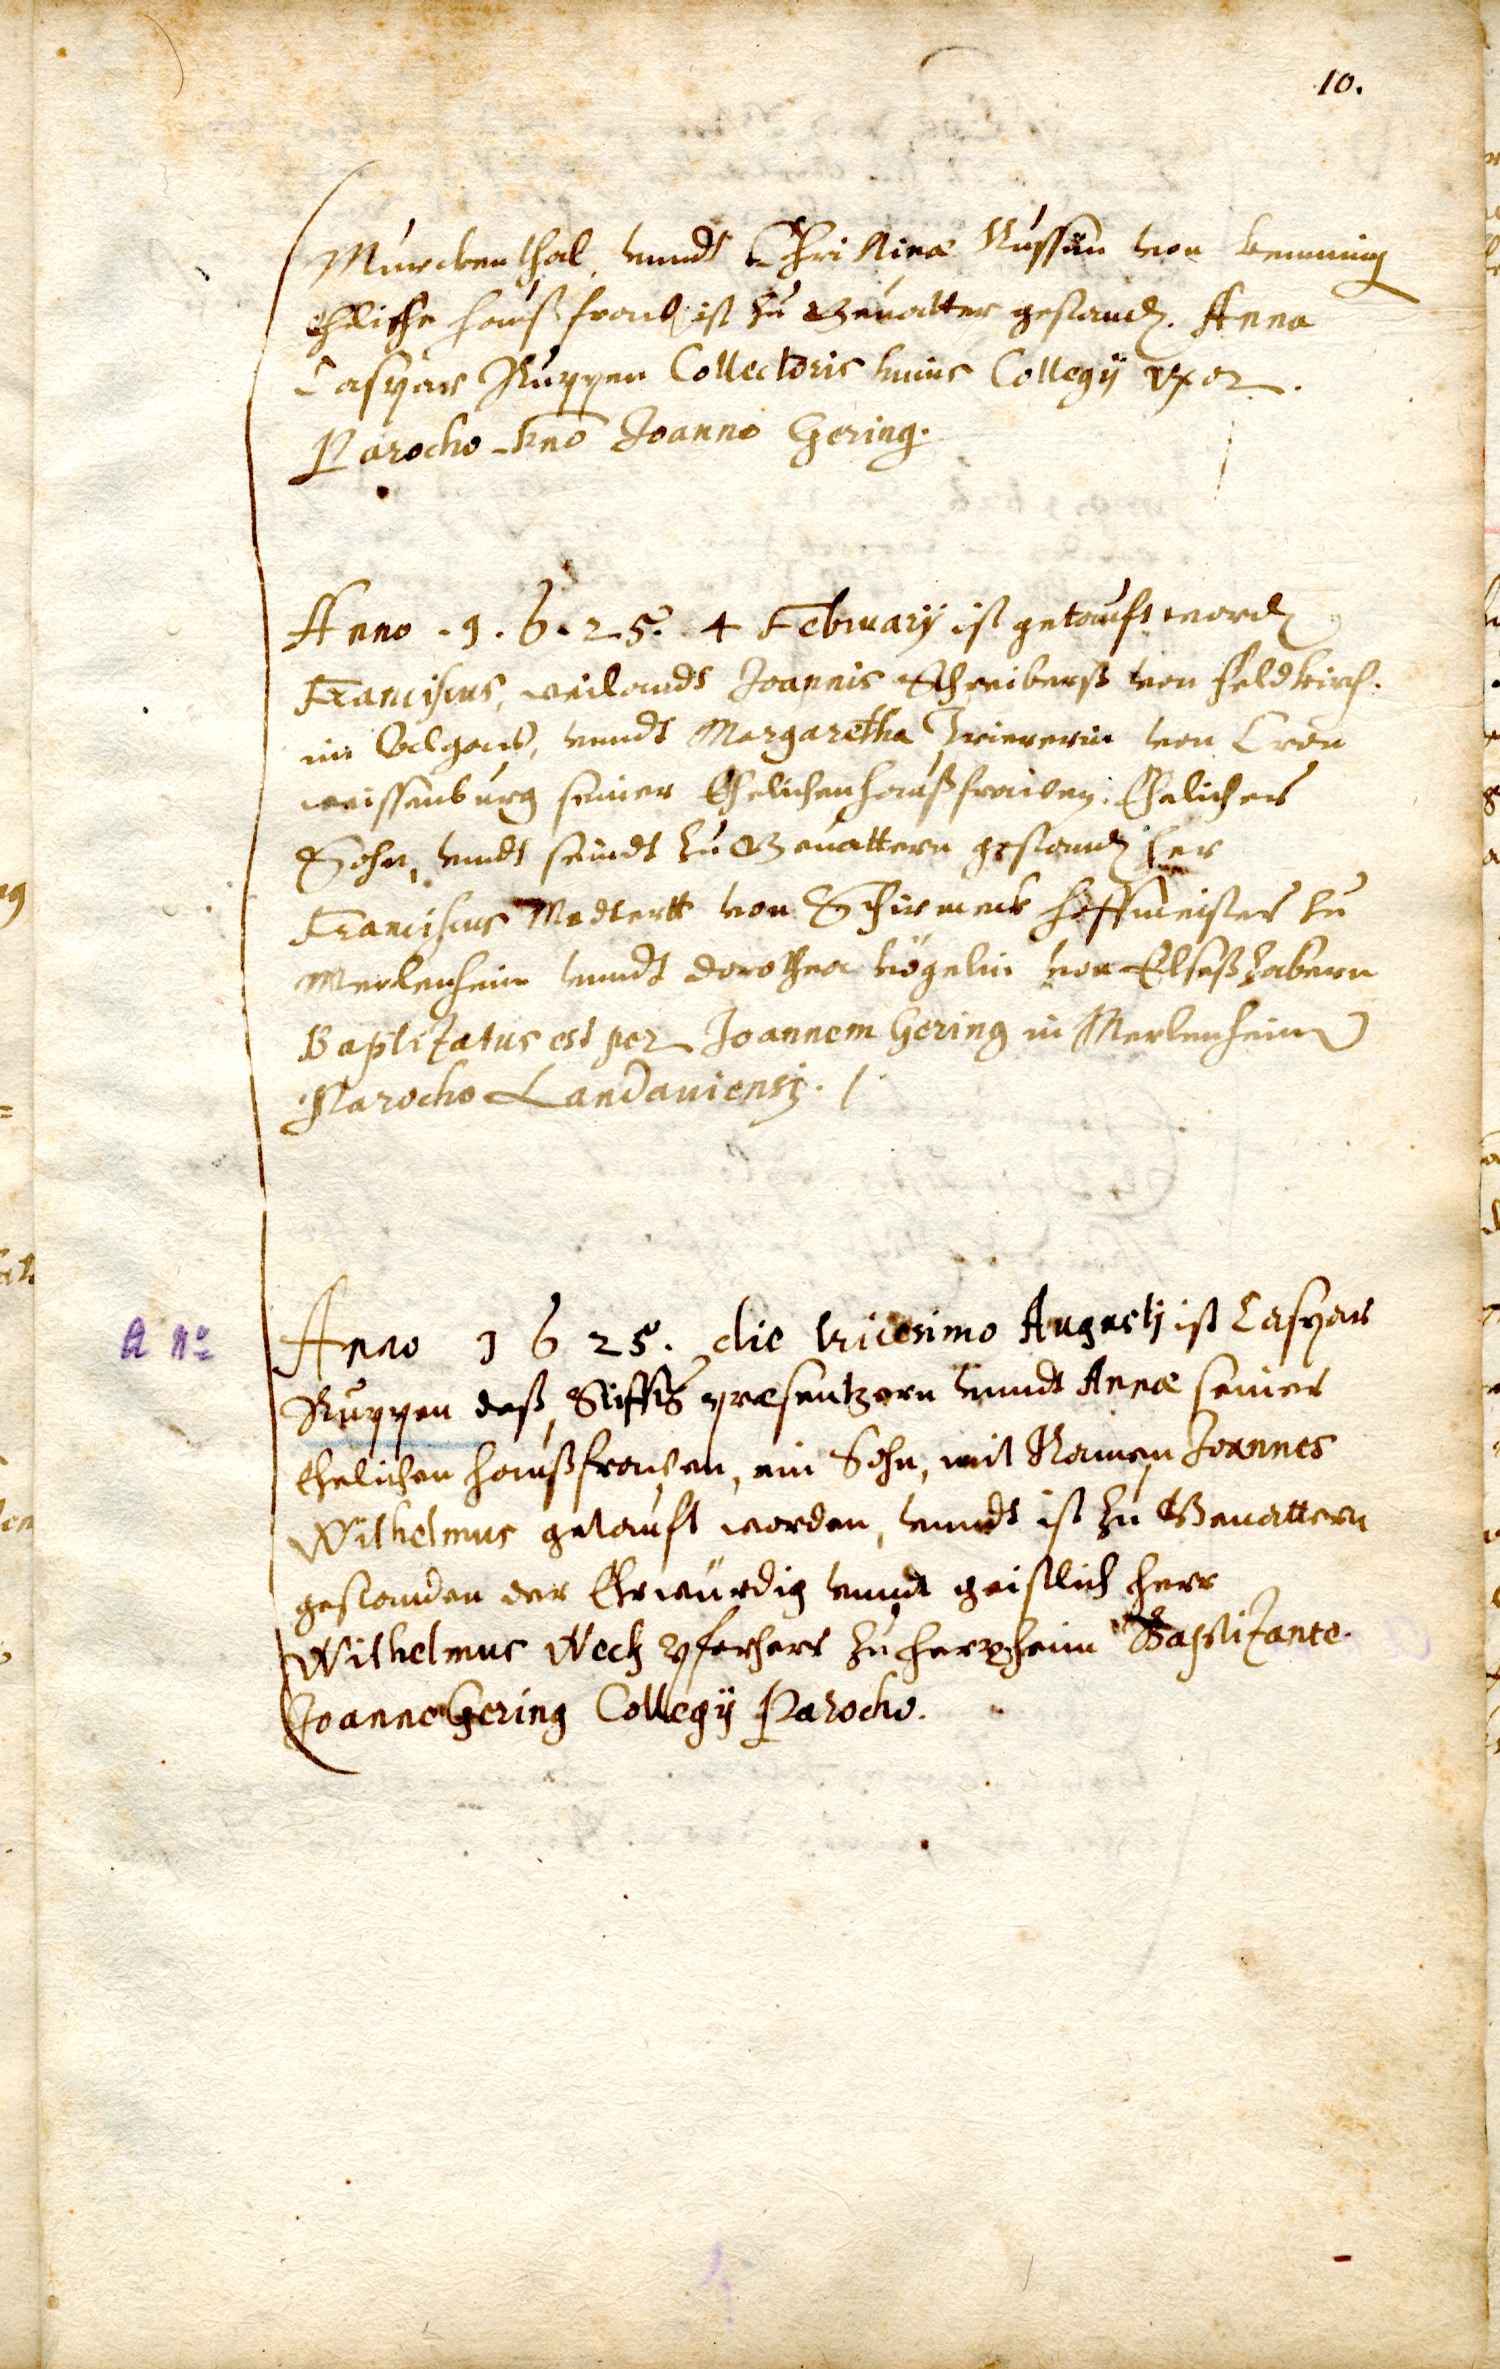 10.
Mürckenthal, vnndt Christinæ Küssin von
ehliche haußfraw, ist zu Gevatter gestand. Anna
Caspar Ruppen Collectoris huius Collegij vxor.
Parocho Joanne Gering.
Anno .1.6.25. 4 February ist getaufft word
Franciscus, weilandt Joannis Schreiberß von Feldkirch
im Algaw, vnndt Margaretha von Cron
weissenburg seiner Ehelichen haußfrawen, Ehelicher
Sohn, vnndt seindt zu Gevattern gestand her
Franciscus von Schirmeck hoffmeister zu
Merlenheim vnndt Dorothea Vögelin von Elsaßzabern
Baptizatus est per Joannem Gering in Merlenheim
Parocho Landauiensi. /
A no
Anno 1625. die vicesimo Augusti ist Caspar
Ruppen deß Stiffts præsentzern vnndt Annæ seiner
Ehelichen haußfrawen, ein Sohn, mit Namen Joannes
Wilhelmus getaufft worden, vnndt ist zu Gevattern
gestanden der Ehrwürdig vnndt geistlich herr
Wilhelmus Weck pfarherr zu herxheim Baptizante
Joanne Gering Collegij Parocho.